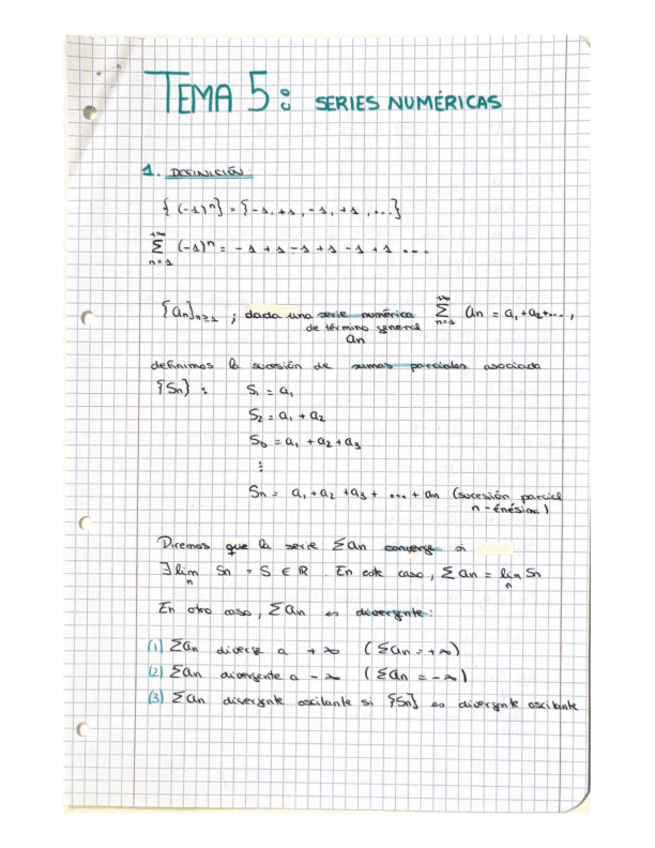 TEMA 5: SERIES NUMÉRICAS
1. DEFINICIÓN
{(-1)ⁿ} = {-1, +1, -1, +1, ...}
+∞
Σ (-1)ⁿ = -1 +1 -1 +1 -1 +1 ...
n=1
{an}n≥1 ; dada una serie numérica +∞ Σ n=1 an = a₁ + a₂ + ...,
de término general
an
definimos la sucesión de sumas parciales asociada
{Sn} : S₁ = a₁
S₂ = a₁ + a₂
S₃ = a₁ + a₂ + a₃
⋮
Sn = a₁ + a₂ + a₃ + ... + an (sucesión parcial
n-énésima)
Diremos que la serie Σan converge si
∃ lim Sn = S ∈ ℝ. En este caso, Σan = lim Sn
n n
En otro caso, Σan es divergente:
(1) Σan diverge a +∞ (Σan = +∞)
(2) Σan divergente a -∞ (Σan = -∞)
(3) Σan divergente oscilante si {Sn} es divergente oscilante